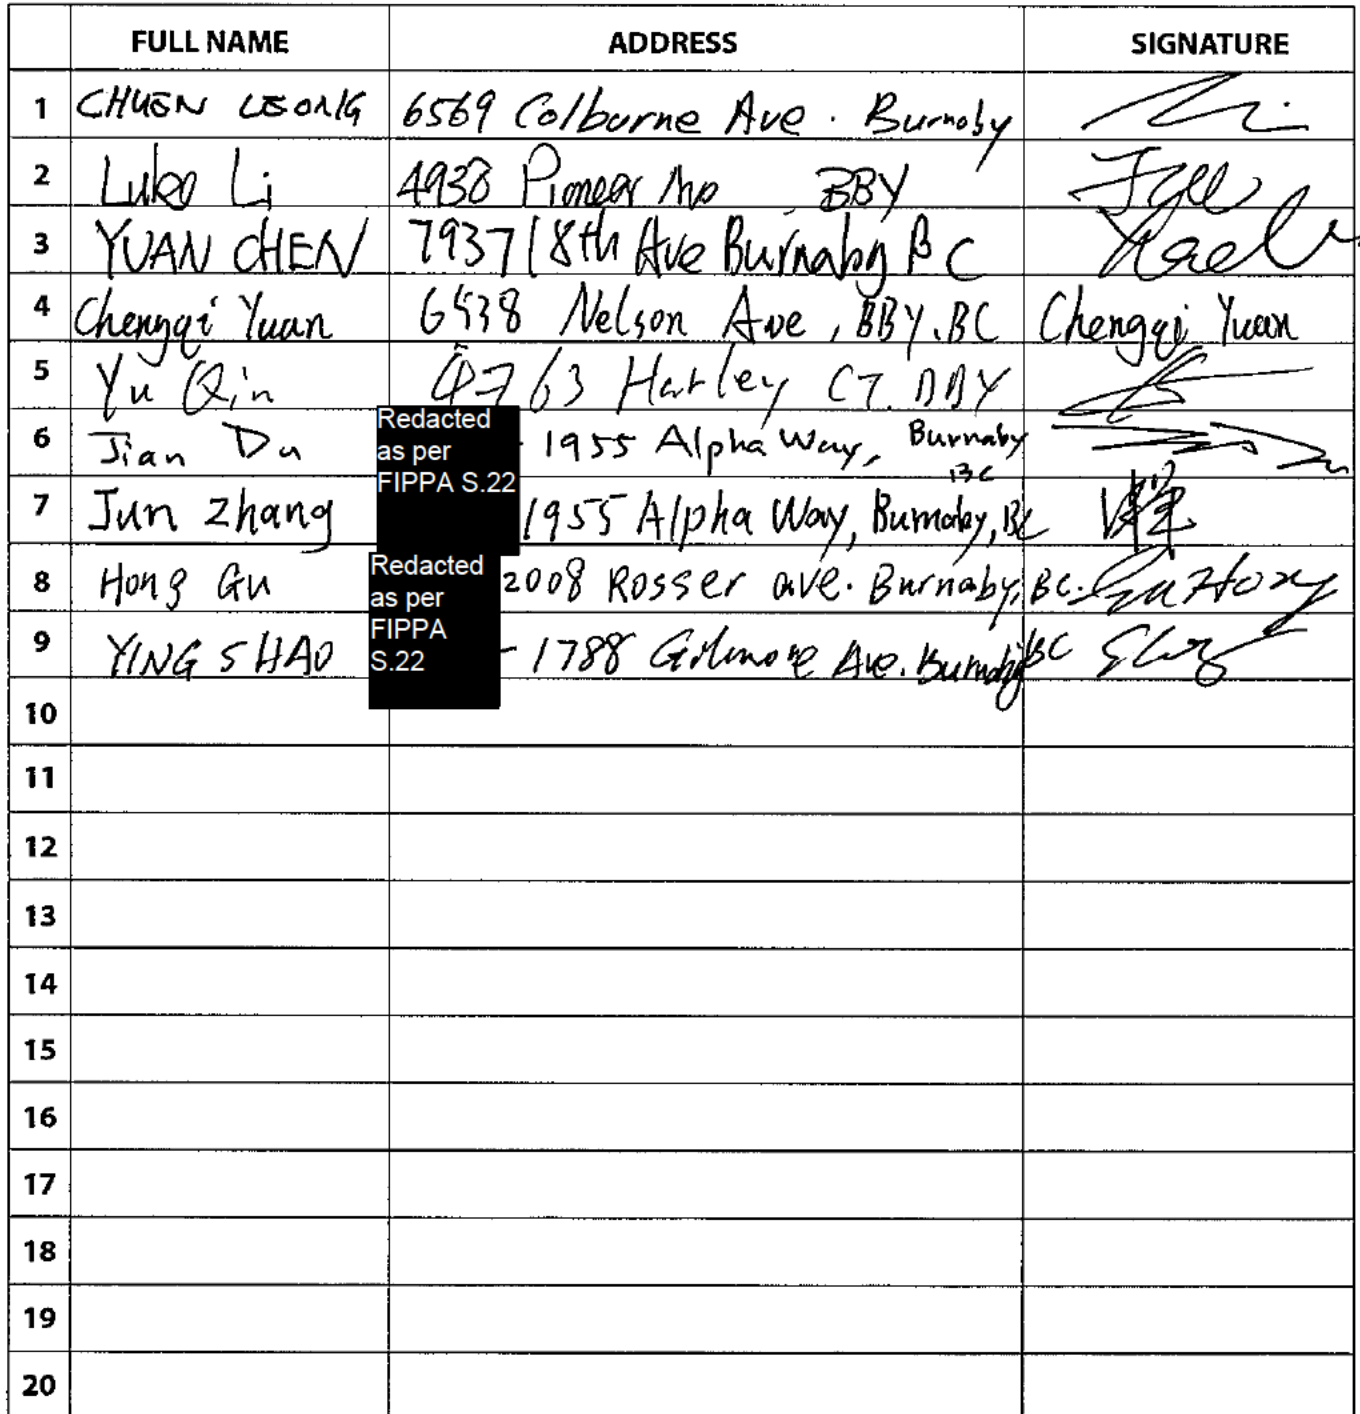 FULL NAME ADDRESS SIGNATURE
1 CHUEN LEONG 6569 Colborne Ave. Burnaby
2 Luke Li 4938 Pioneer Ave BBY
3 YUAN CHEN 7937 18th Ave Burnaby BC
4 Chengqi Yuan 6538 Nelson Ave, BBY. BC Chengqi Yuan
5 Yu Qin 4763 Hurley CT. BBY
6 Jian Du Redacted as per FIPPA S.22 - 1955 Alpha Way, Burnaby BC
7 Jun Zhang 1955 Alpha Way, Burnaby, BC
8 Hong Gu Redacted as per FIPPA S.22 2008 Rosser ave. Burnaby, BC. Gu Hong
9 YING SHAO - 1788 Gilmore Ave. Burnaby BC
10
11
12
13
14
15
16
17
18
19
20